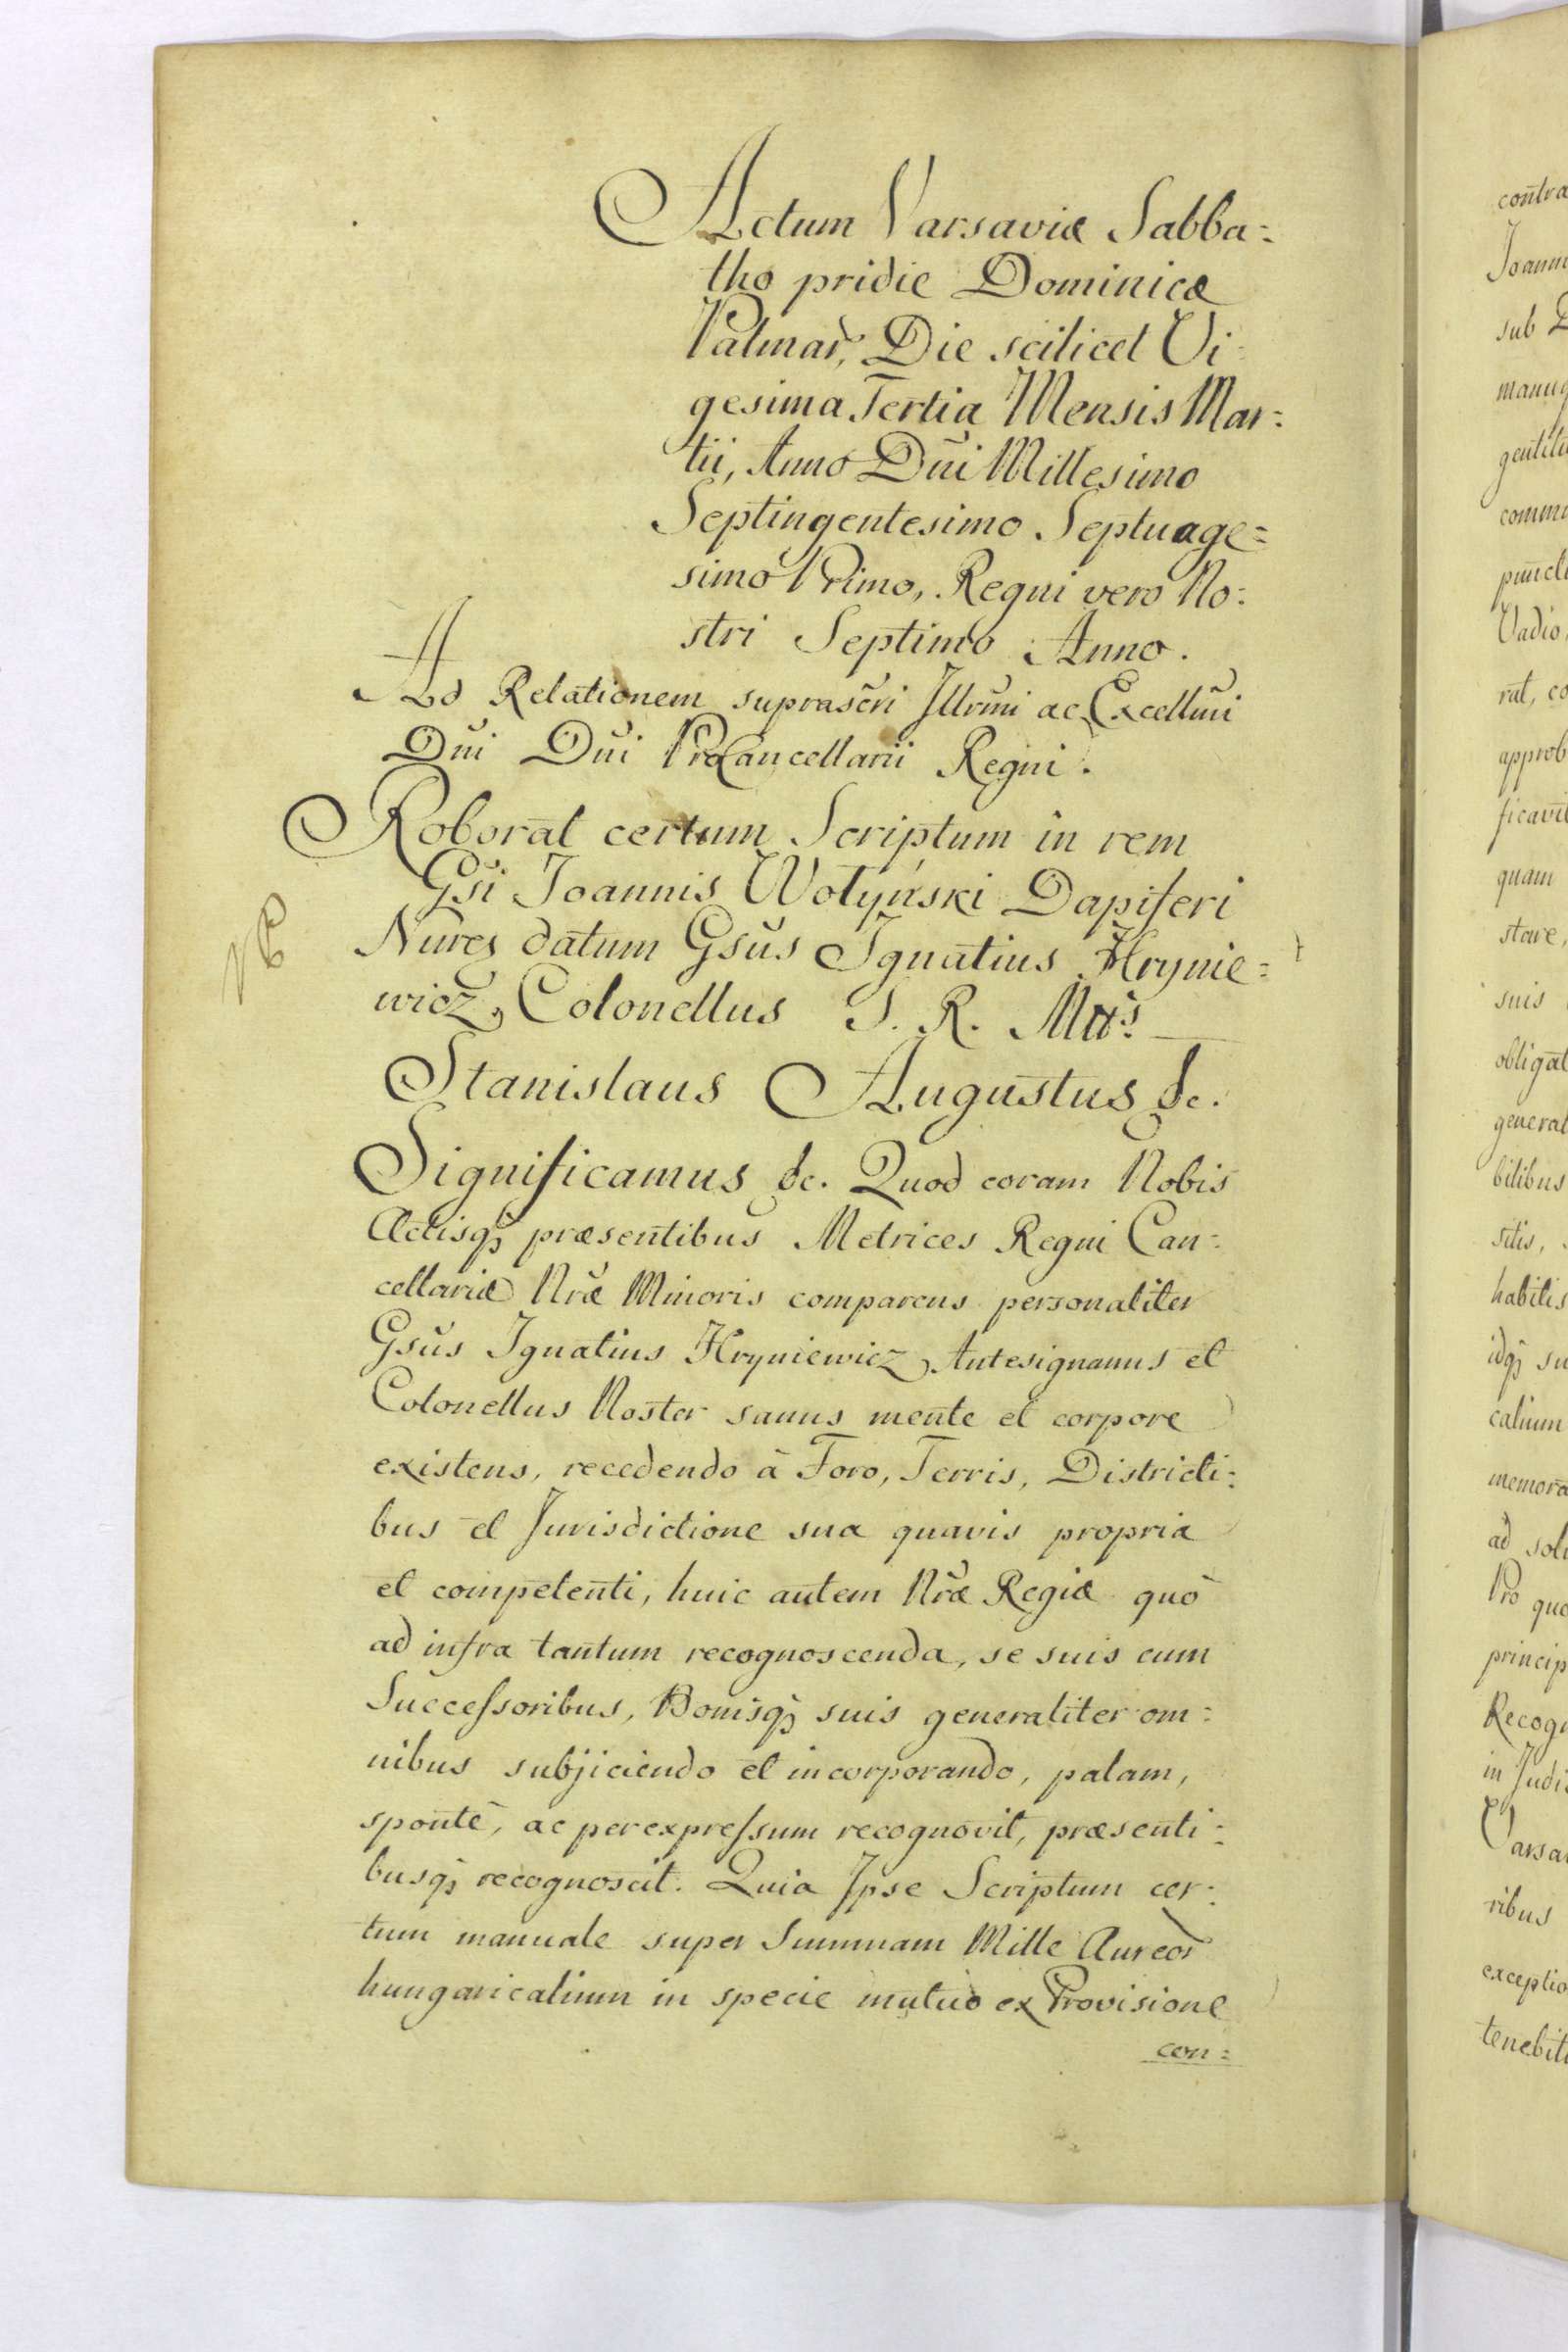 Actum Varsaviæ Sabba=
tho pridie Dominicæ
Palmar̃, Die scilicet Vi=
gesima Tertia Mensis Mar=
tii, Anno Dñi Millesimo
Septingentesimo Septuage=
simo Primo, Regni vero No=
stri Septimo Anno.
Ad Relationem suprascr̃i Illrm̃i ac Excellm̃i
Dñi Dñi ProCancellarii Regni.
Roborat certum Scriptum in rem
Gsi Joannis Wołyński Dapiferi
Nureñ datum Gsũs Ignatius Hrynie=
wicz, Colonellus S. R. Mtis
Stanislaus Augustus &c.
Significamus &c. Quod coram Nobis
Actisq3 præsentibus Metrices Regni Can=
cellariæ Nræ Minoris comparens personaliter
Gsũs Ignatius Hryniewicz Antesignanus et
Colonellus Noster sanus mente et corpore
existens, recedendo à Foro, Terris, Districti=
bus et Jurisdictione sua quavis propria
et competenti, huic autem Nræ Regiæ quò
ad infra tantum recognoscenda, se suis cum
Successoribus, Bonisq3 suis generaliter om=
nibus subjiciendo et incorporando, palam,
spontè, ac per expressum recognovit, præsenti=
busq3 recognoscit. Quia Ipse Scriptum cer=
tum manuale super Summam Mille Aureor̃
hungaricalium in specie mutuò ex Provisione
con=
contra
Joann
sub
gentili
comm
Vadio
rat, co
approb
ficavit
quam
stare,
suis
obligat
general
bilibus
sitis,
habilis
idq3 su
calium
memora
ad solu
Pro quo
princip
Recogn
in Judi
Varsa
ribus
exceptio
tenebit